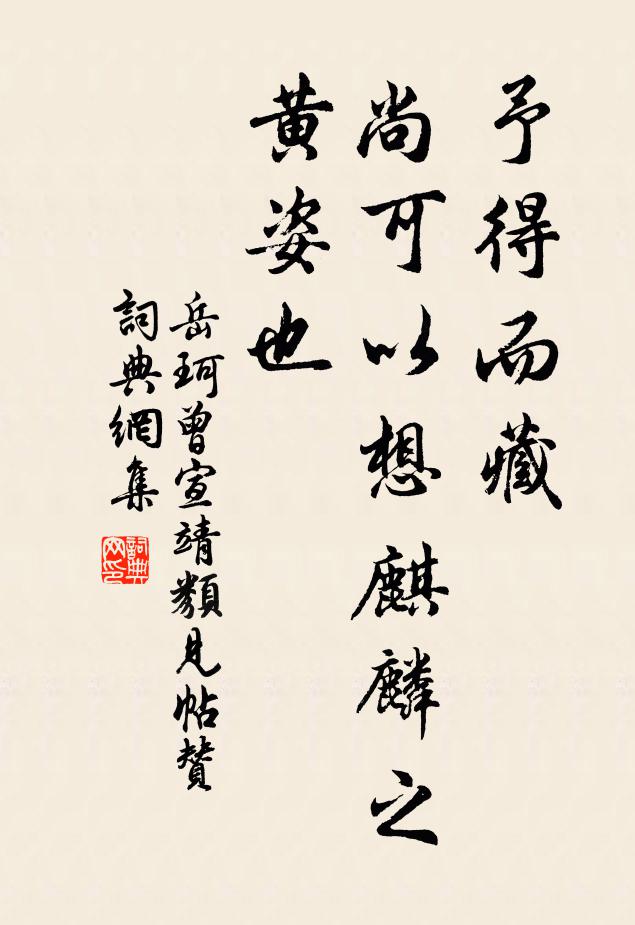 予得而藏
尚可以想麒麟之
黄姿也
岳珂曾宣靖類見帖贊
詞典網集
詞典网印